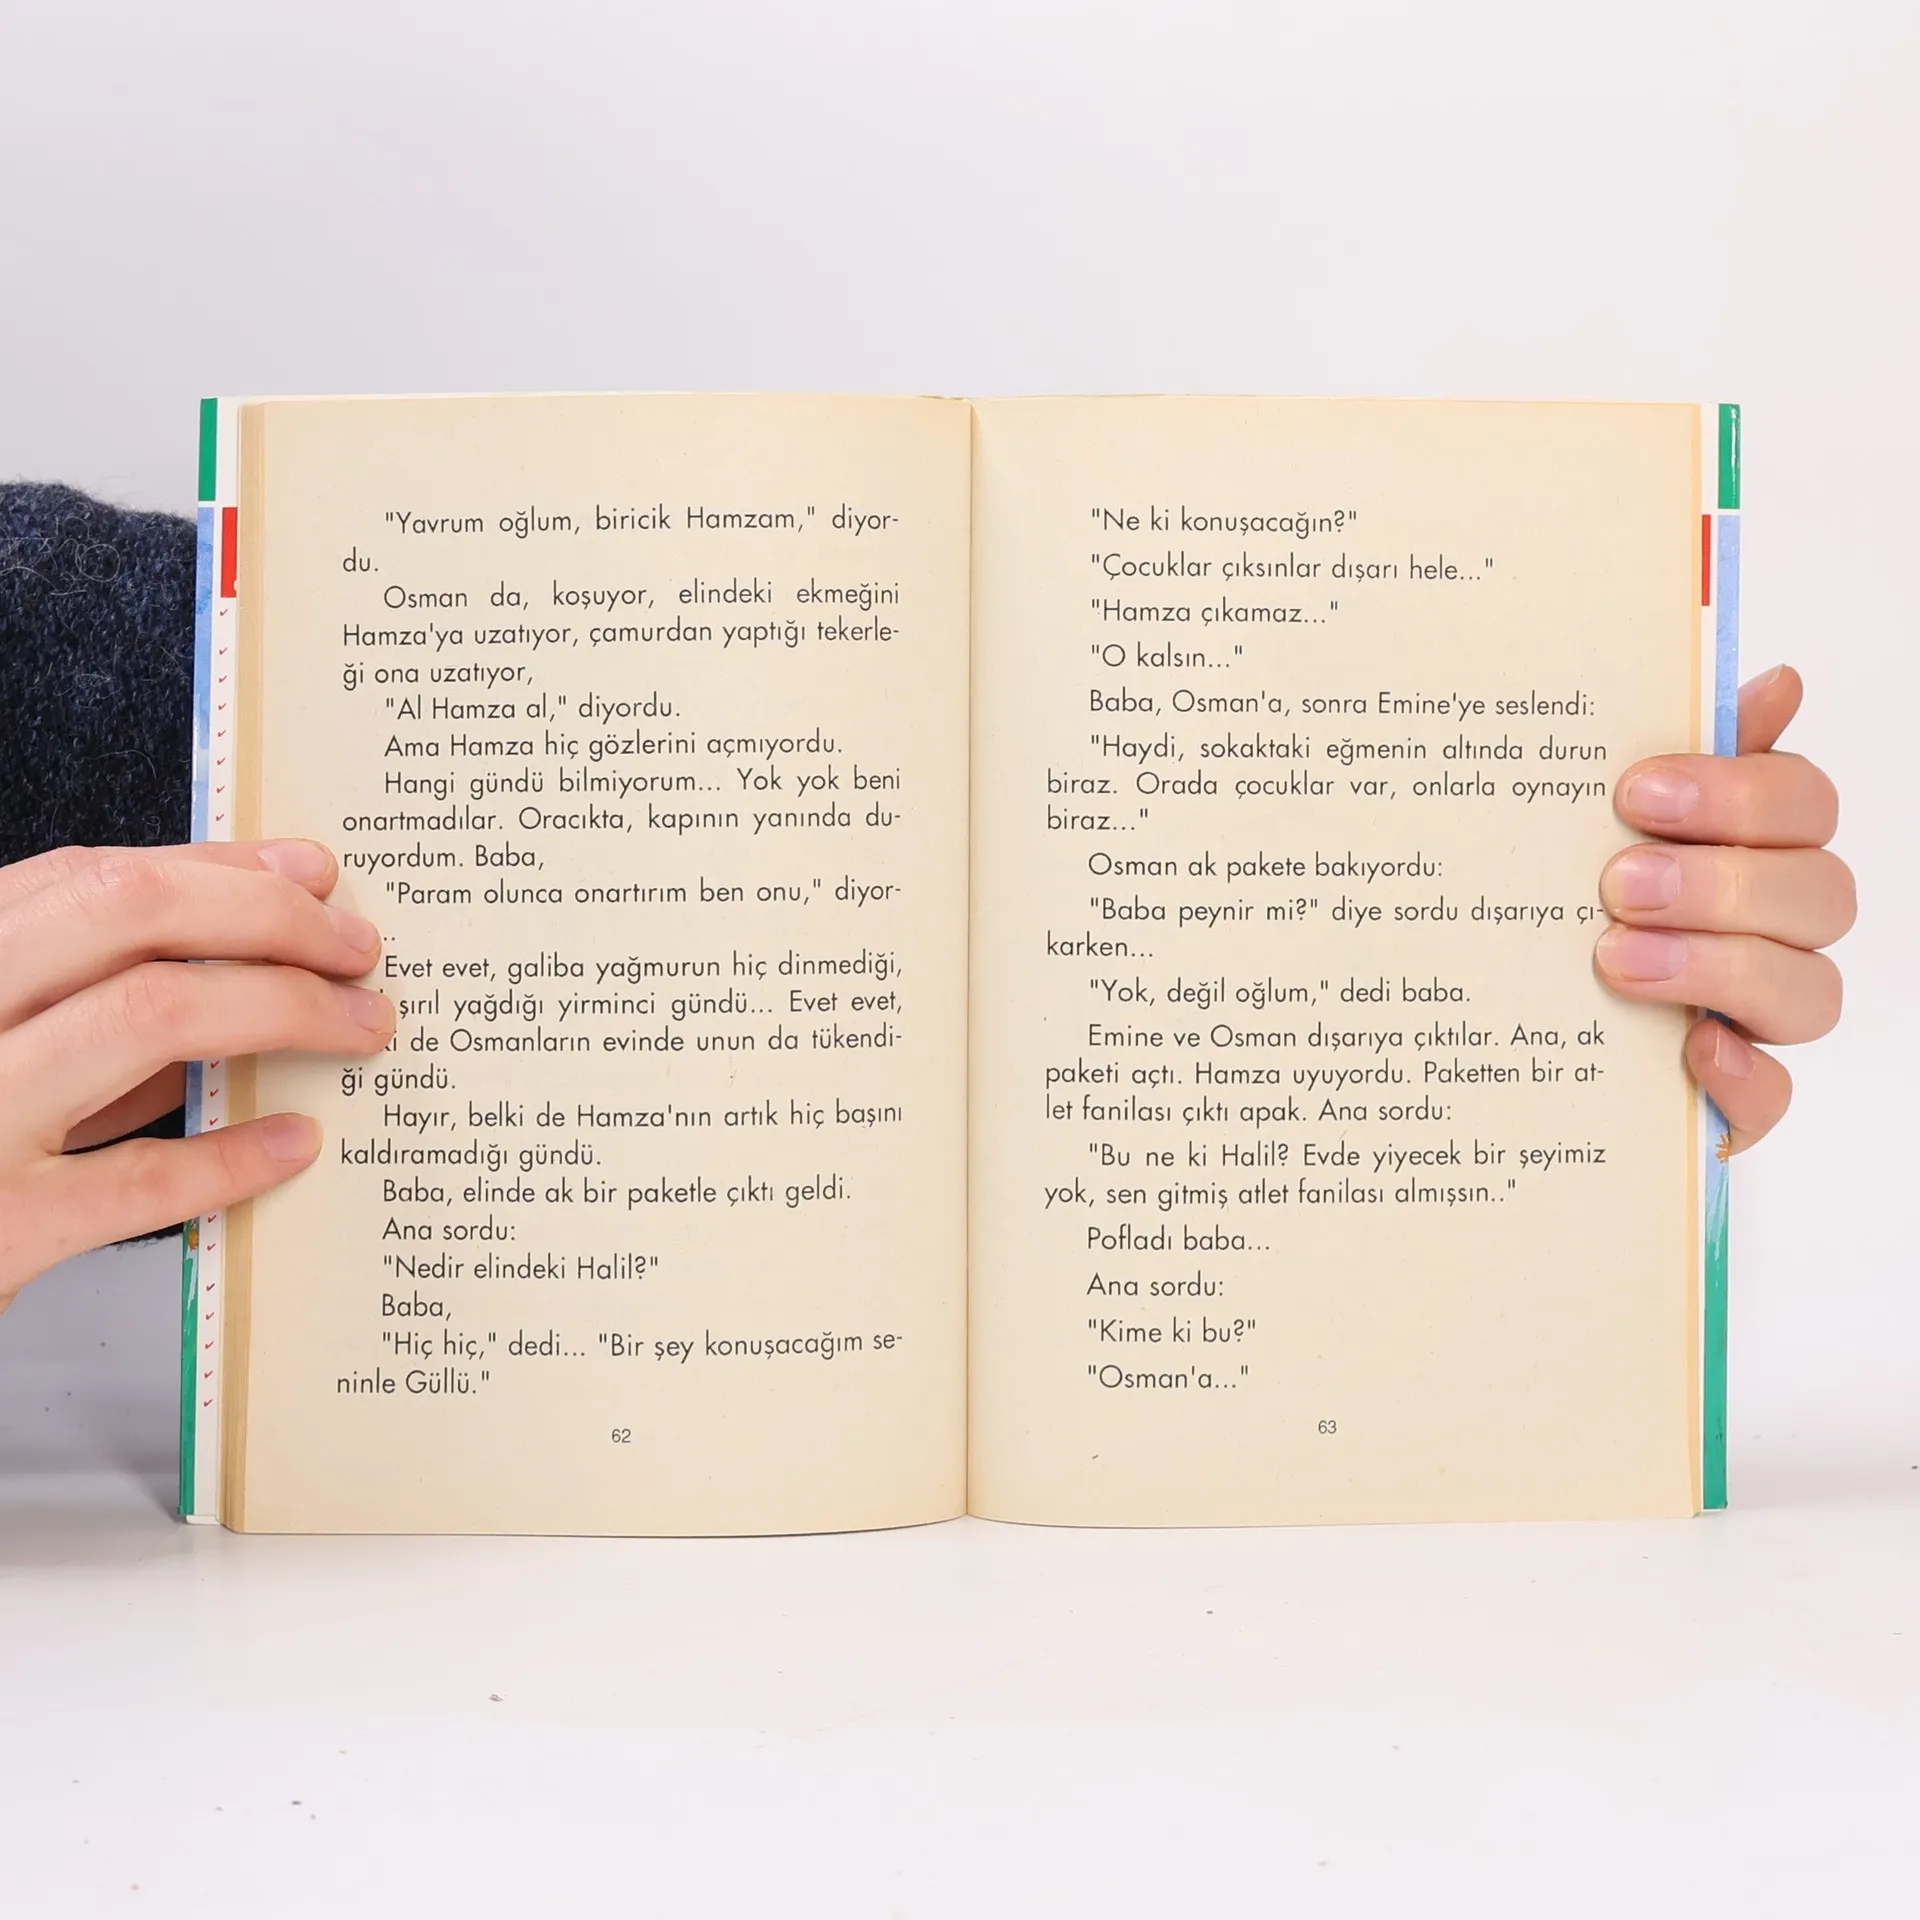 "Yavrum oğlum, biricik Hamzam," diyor-
du.
Osman da, koşuyor, elindeki ekmeğini
Hamza'ya uzatıyor, çamurdan yaptığı tekerle-
ği ona uzatıyor,
"Al Hamza al," diyordu.
Ama Hamza hiç gözlerini açmıyordu.
Hangi gündü bilmiyorum... Yok yok beni
onartmadılar. Oracıkta, kapının yanında du-
ruyordum. Baba,
"Param olunca onartırım ben onu," diyor-
..
Evet evet, galiba yağmurun hiç dinmediği,
yağdığı yirminci gündü... Evet evet,
de Osmanların evinde unun da tükendi-
ği gündü.
Hayır, belki de Hamza'nın artık hiç başını
kaldıramadığı gündü.
Baba, elinde ak bir paketle çıktı geldi.
Ana sordu:
"Nedir elindeki Halil?"
Baba,
"Hiç hiç," dedi... "Bir şey konuşacağım se-
ninle Güllü."
62
"Ne ki konuşacağın?"
"Çocuklar çıksınlar dışarı hele..."
"Hamza çıkamaz..."
"O kalsın..."
Baba, Osman'a, sonra Emine'ye seslendi:
"Haydi, sokaktaki eğmenin altında durun
biraz. Orada çocuklar var, onlarla oynayın
biraz..."
Osman ak pakete bakıyordu:
"Baba peynir mi?" diye sordu dışarıya çı-
karken...
"Yok, değil oğlum," dedi baba.
Emine ve Osman dışarıya çıktılar. Ana, ak
paketi açtı. Hamza uyuyordu. Paketten bir at-
let fanilası çıktı apak. Ana sordu:
"Bu ne ki Halil? Evde yiyecek bir şeyimiz
yok, sen gitmiş atlet fanilası almışsın.."
Pofladı baba...
Ana sordu:
"Kime ki bu?"
"Osman'a..."
63